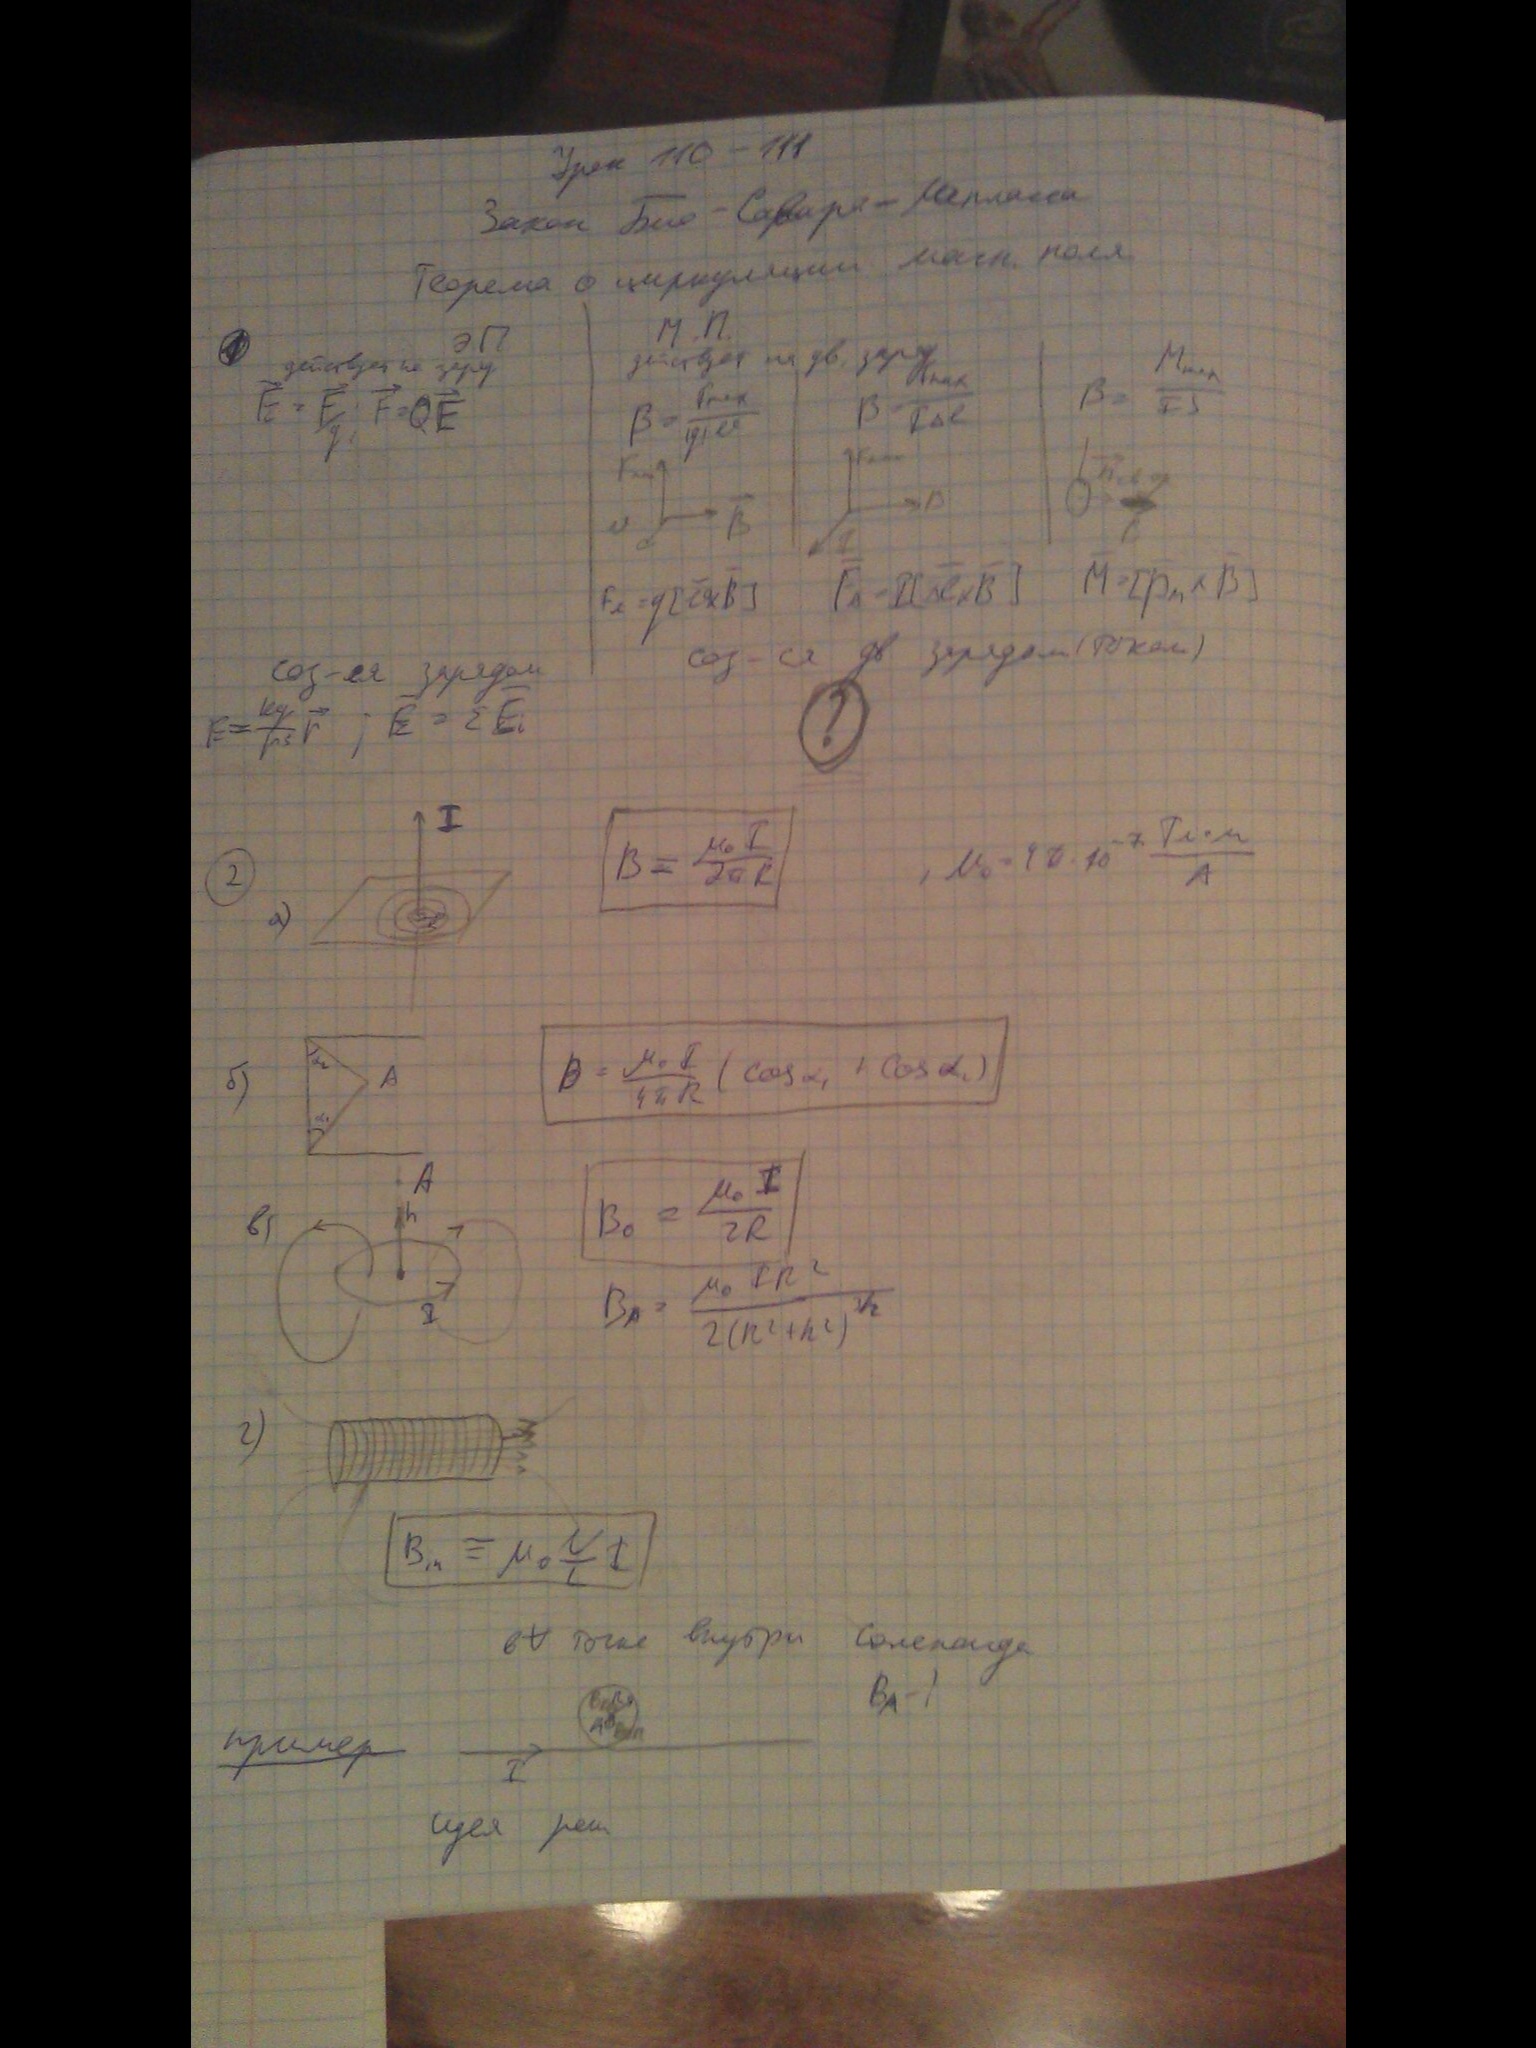 Урок 110-111
Закон Био-Савара-Лапласса
Теорема о циркуляции магн. поля.
1
ЭП
действует на заряд
E = F/q; F = QE
М.П.
действует на дв. заряд
B = Fmax/|q|v
B = Fmax/IΔl
B = Mmax/IS
B
B
I
Fл = q[v×B]
FA = I[Δl×B]
M = [pm×B]
соз-ся зарядом
соз-ся дв зарядом (током)
E = kq/r³ r ; E = ΣEi
?
2
а)
I
B = μ₀I/2πR
, μ₀ = 4π·10⁻⁷ Тл·м/А
б)
A
B = μ₀I/4πR (cosα₁ + cosα₂)
в)
A
h
I
B₀ = μ₀I/2R
BA = μ₀IR²/2(R²+h²)^3/2
г)
Bin = μ₀ N/L I
в ∀ точке внутри соленоида
BA - !
пример
I
идея реш